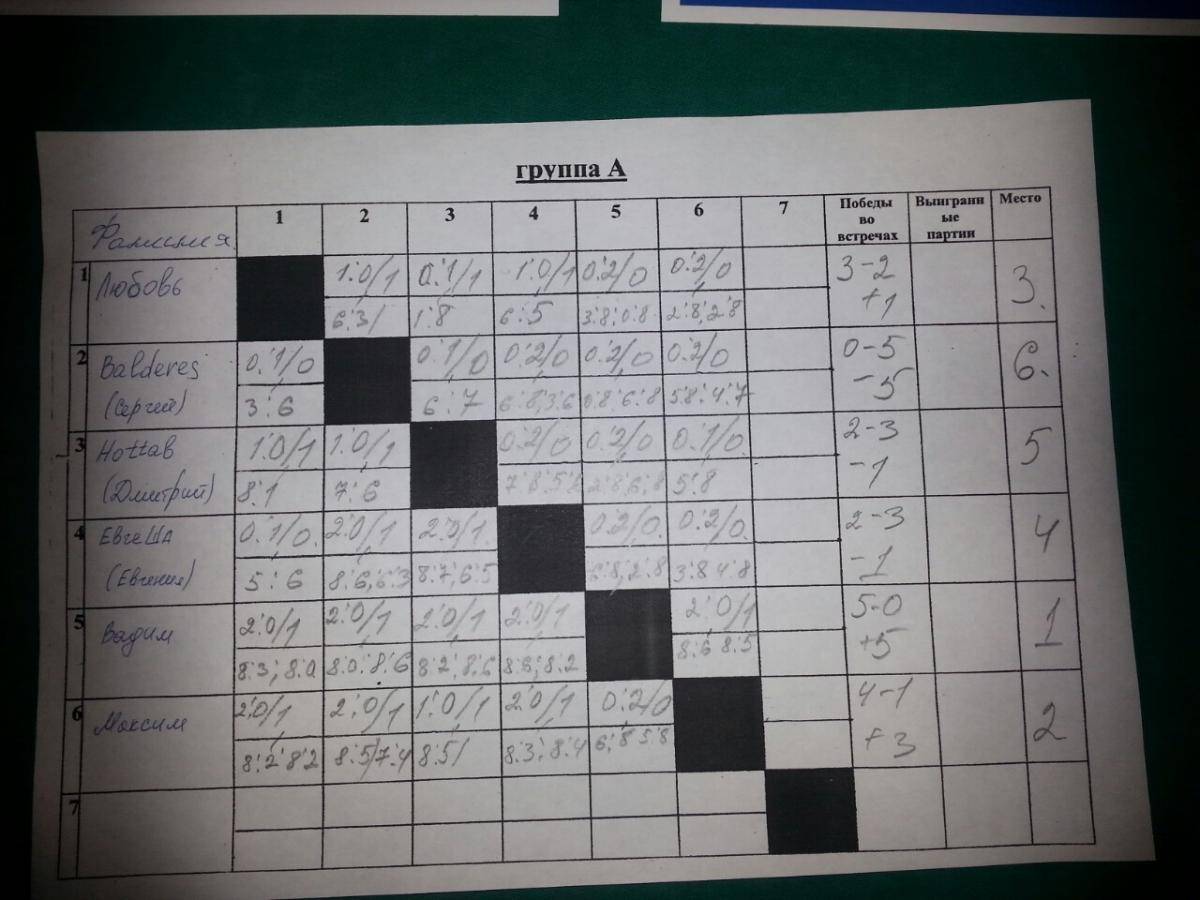 группа А
Фамилия 1 2 3 4 5 6 7 Победы во встречах Выигранн ые партии Место
1 Любовь 1:0/1 0:1/1 1:0/1 0:2/0 0:2/0 3-2 3.
6:3/ 1:8 6:5 3:8,0:8 2:8,2:8 +1
2 Balderes 0:1/0 0:1/0 0:2/0 0:2/0 0:2/0 0-5 6.
(Сергей) 3:6 6:7 6:8,3:6 0:8:6:8 5:8:4:7 -5
3 Hottab 1:0/1 1:0/1 0:2/0 0:2/0 0:1/0. 2-3 5
(Дмитрий) 8:1 7:6 2:8,6:8 5:8 -1
4 ЕвгеША 0:1/0. 2:0/1 2:0/1. 0:2/0. 0:2/0. 2-3 4
(Евгения) 5:6 8:6,6:3 8:7,6:5 6:8,2:8 3:8 4:8 -1
5 Вадим 2:0/1 2:0/1 2:0/1 2:0/1 2:0/1 5-0 1
8:3; 8:0 8:0,8:6 8:2,8:6 8:6;8:2 8:6 8:5 +5
6 Максим 2:0/1 2:0/1 1:0/1 2:0/1 0:2/0 4-1 2
8:2 8:2 8:5/7:4 8:5/ 8:3; 8:4 6:8 5:8 +3
7